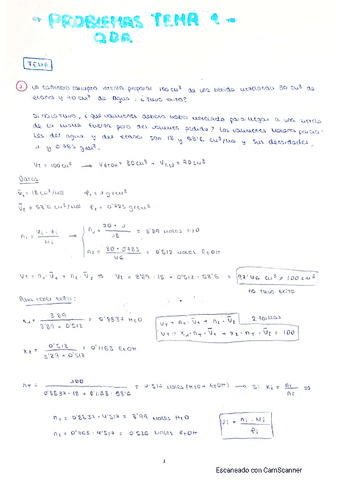 → PROBLEMAS TEMA 1 -
QDA
TEMA
Un camarero intentó preparar 100 cm³ de una bebida mezclando 30 cm³ de
etanol y 70 cm³ de agua. ¿Tuvo éxito?
Si no lo tuvo, ¿qué volúmenes debería haber mezclado para llegar a una mezcla
de la misma fuerza pero del volumen pedido? Los volúmenes molares parcia-
les del agua y del etanol son 18 y 58'6 cm³/mol y sus densidades,
1 y 0'785 g/cm³.
V_T = 100 cm³ → V_EtOH = 30 cm³ - V_H2O = 70 cm³
Datos
V̄₁ = 18 cm³/mol ρ₁ = 1 g/cm³
V̄₂ = 58'6 cm³/mol ρ₂ = 0'785 g/cm³
n_i = V_i · ρ_i / M_i → n₁ = 70 · 1 / 18 = 3'89 moles H₂O
n₂ = 30 · 0'785 / 46 = 0'512 moles EtOH
V_T = n₁ · V̄₁ + n₂ · V̄₂ ⇒ V_T = 3'89 · 18 + 0'512 · 58'6 = 97'46 cm³ ≠ 100 cm³
no tuvo éxito
Para tener éxito:
x₁ = 3'89 / 3'89 + 0'512 = 0'8837 H₂O
V_T = n₁ · V̄₁ + n₂ · V̄₂
x₁ · n_T · V̄₁ + x₂ · n_T · V̄₂ = 100
x₂ = 0'512 / 3'89 + 0'512 = 0'1163 EtOH
n_T = 100 / 0'8837 · 18 + 0'1163 · 58'6 = 4'517 moles (H₂O + EtOH) → si x_i = n_i / n_T ⇒
n₁ = 0'8837 · 4'517 = 3'99 moles H₂O
n₂ = 0'1163 · 4'517 = 0'525 moles EtOH
V_i = n_i · M_i / ρ_i
1
Escaneado con CamScanner